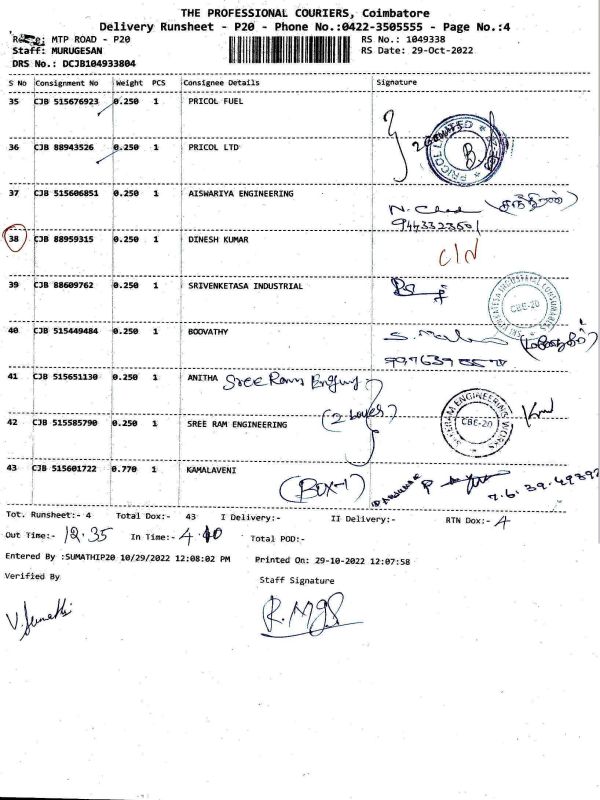 THE PROFESSIONAL COURIERS, Coimbatore
Delivery Runsheet - P20 - Phone No.:0422-3505555 - Page No.:4
MTP ROAD - P20
RS No.: 1049338
Staff: MURUGESAN
RS Date: 29-Oct-2022
DRS No.: DCJB104933804
S No Consignment No Weight PCS Consignee Details Signature
35 CJB 515676923 0.250 1 PRICOL FUEL
PRICOL LIMITED
36 CJB 88943526 0.250 1 PRICOL LTD
37 CJB 515606851 0.250 1 AISWARIYA ENGINEERING
38 CJB 88959315 0.250 1 DINESH KUMAR C/N
39 CJB 88609762 0.250 1 SRIVENKETASA INDUSTRIAL
CBE-20
40 CJB 515449484 0.250 1 BOOVATHY
41 CJB 515651130 0.250 1 ANITHA Sree Ram
42 CJB 515585790 0.250 1 SREE RAM ENGINEERING
ENGINEERING WORKS CBE-20
43 CJB 515601722 0.770 1 KAMALAVENI (BOX-1)
Tot. Runsheet:- 4 Total Dox:- 43 I Delivery:- II Delivery:- RTN Dox:- 4
Out Time:- 12.35 In Time:- Total POD:-
Entered By :SUMATHIP20 10/29/2022 12:08:02 PM Printed On: 29-10-2022 12:07:58
Verified By Staff Signature